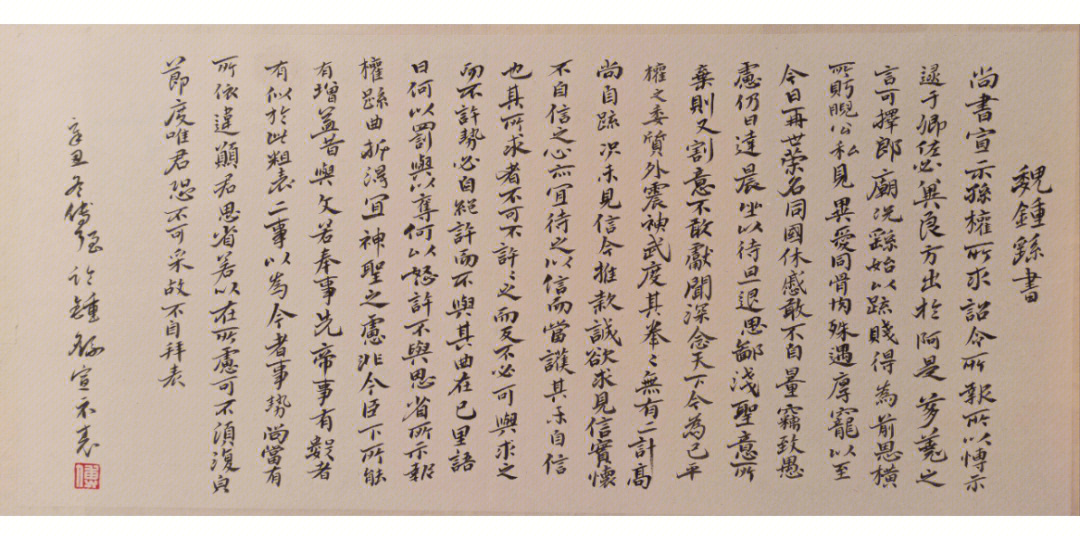 魏鍾繇書
尚書宣示孫權所求詔令所報所以博示
逮于卿佐必冀良方出於阿是芻蕘之
言可擇郎廟況繇始以疏賤得為前恩橫
所眄睨公私見異愛同骨肉殊遇厚寵以至
今日再世榮名同國休慼敢不自量竊致愚
慮仍日達晨坐以待旦退思鄙淺聖意所
棄則又割意不敢獻聞深念天下今為已平
權之委質外震神武度其拳〻無有二計高
尚自疏況未見信今推款誠欲求見信實懷
不自信之心亦宜待之以信而當護其未自信
也其所求者不可不許〻之而反不必可與求之
而不許勢必自絕許而不與其曲在己里語
曰何以罰與以奪何以怒許不與思省所示報
權疏曲折得宜神聖之慮非今臣下所能
有增益昔與文若奉事先帝事有數者
有似於此粗表二事以為今者事勢尚當有
所依違願君思省若以在所慮可不須復皃
節度唯君恐不可采故不自拜表
辛丑冬傅強臨鍾繇宣示表
傅